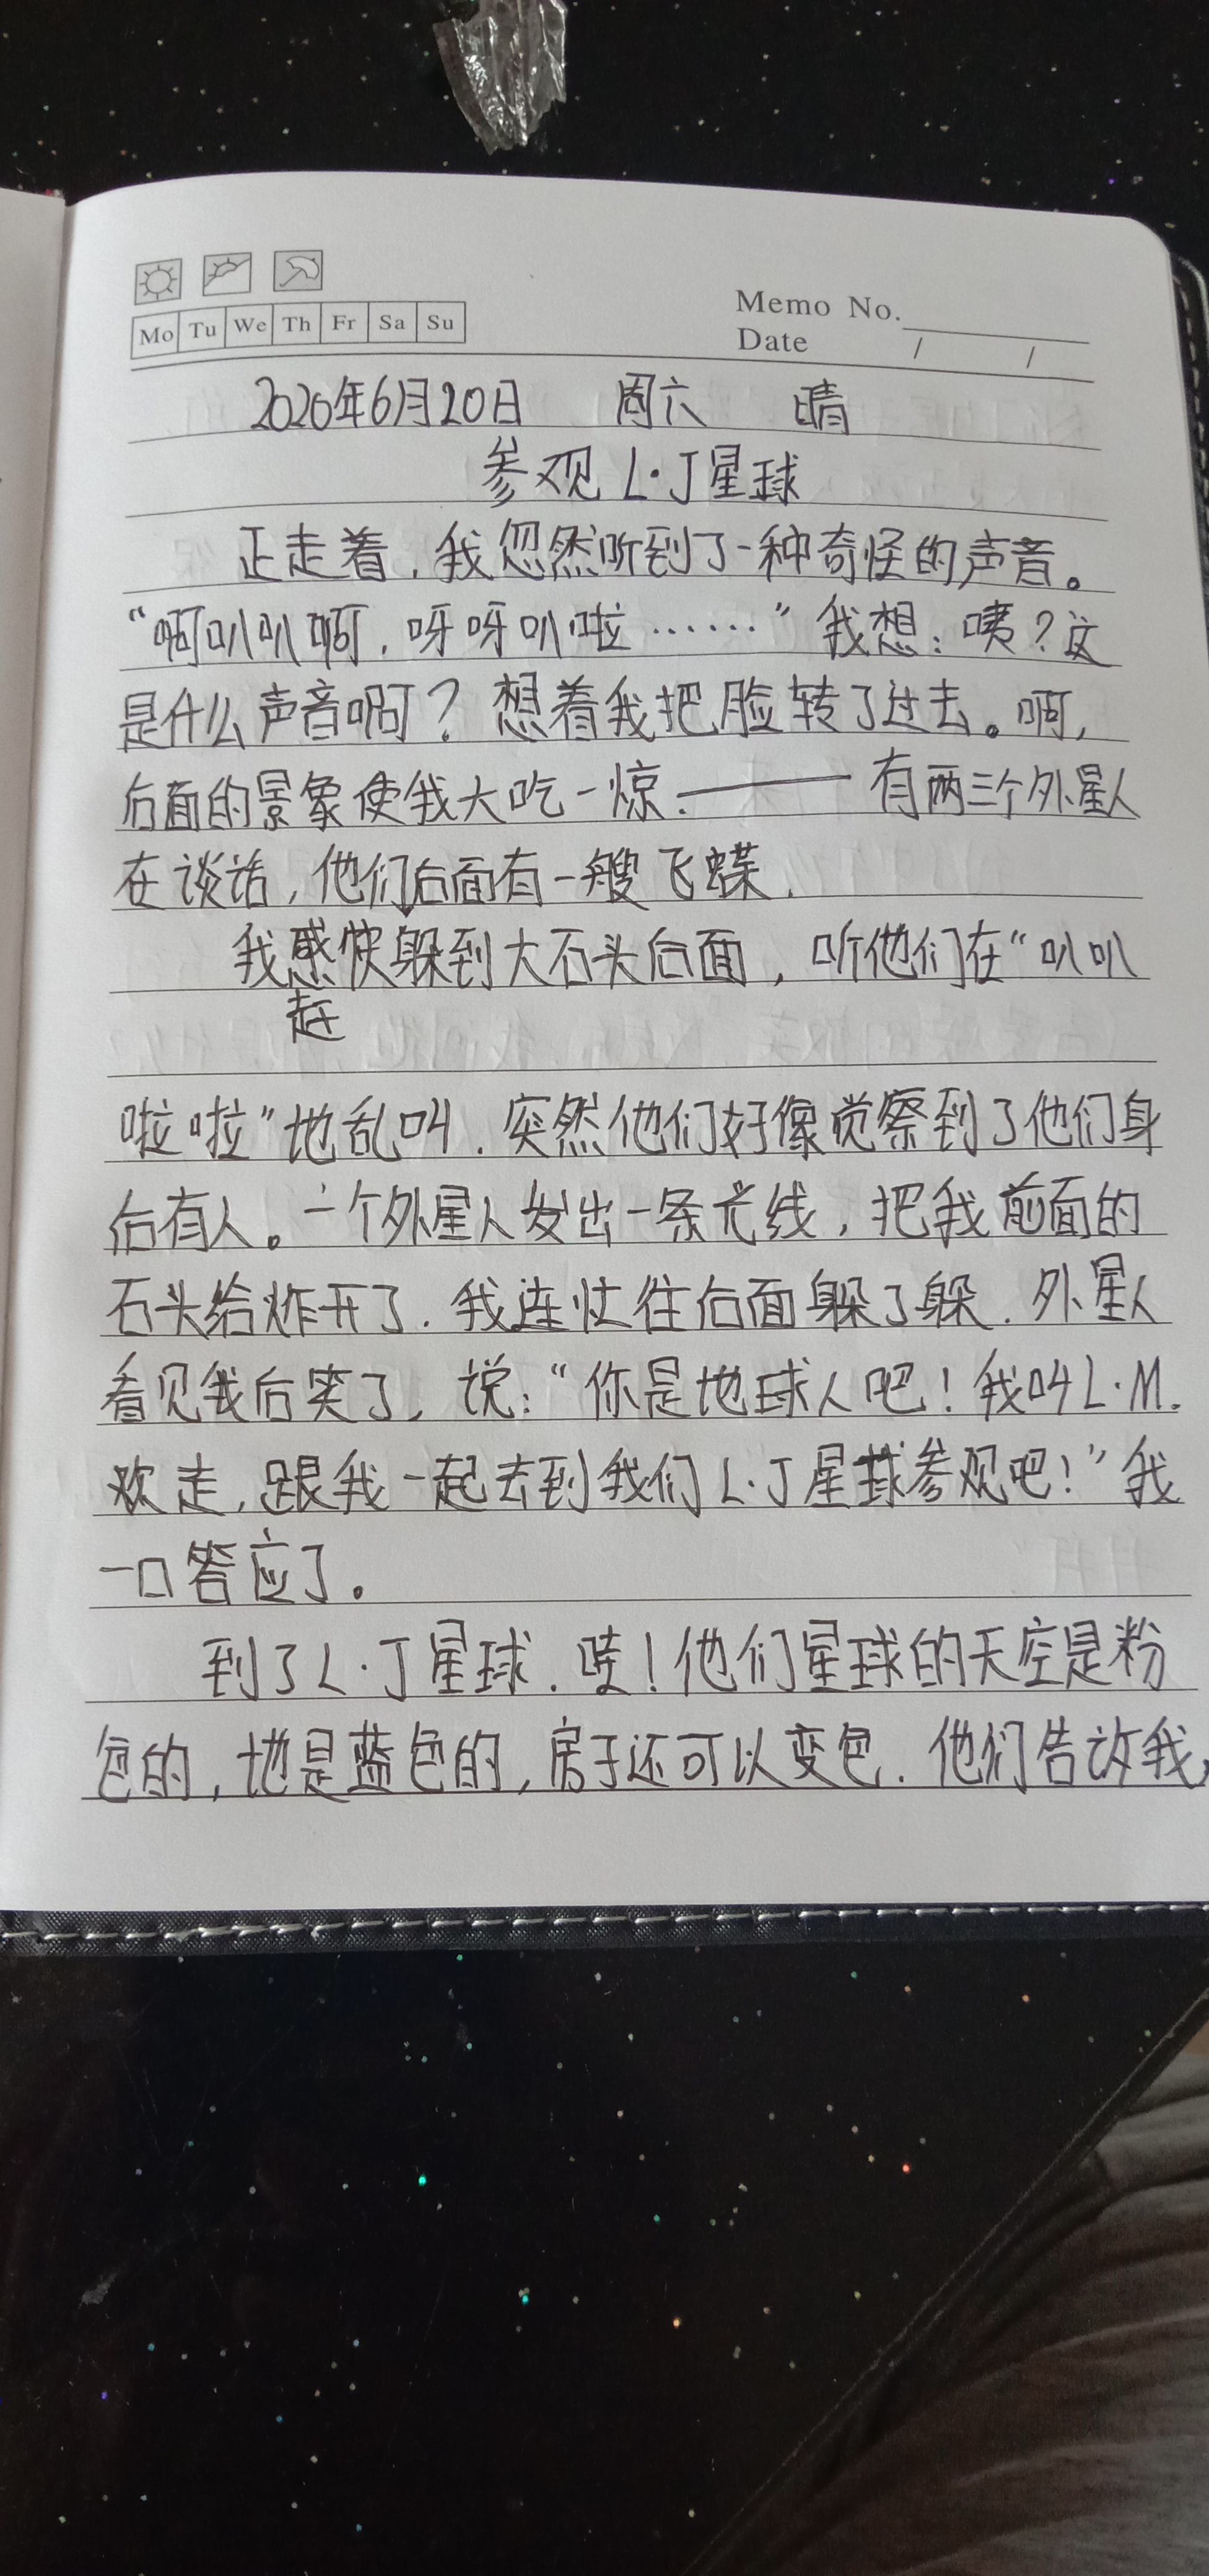 Mo Tu We Th Fr Sa Su
Memo No.
Date / /
2020年6月20日 周六 晴
参观L·J星球
正走着,我忽然听到了一种奇怪的声音。
“啊叭叭啊,呀呀叭啦……”我想:咦?这
是什么声音啊?想着我把脸转了过去。啊,
后面的景象使我大吃一惊.——有两三个外星人
在谈话,他们后面有一艘飞蝶.
我感快躲到大石头后面,听他们在“叭叭
赶
啦啦”地乱叫.突然他们好像觉察到了他们身
后有人。一个外星人发出一条光线,把我前面的
石头给炸开了.我连忙往后面躲了躲.外星人
看见我后笑了,说:“你是地球人吧!我叫L·M.
欢走,跟我一起去到我们L·J星球参观吧!”我
一口答应了。
到了L·J星球.哇!他们星球的天空是粉
色的,地是蓝色的,房子还可以变色.他们告诉我,